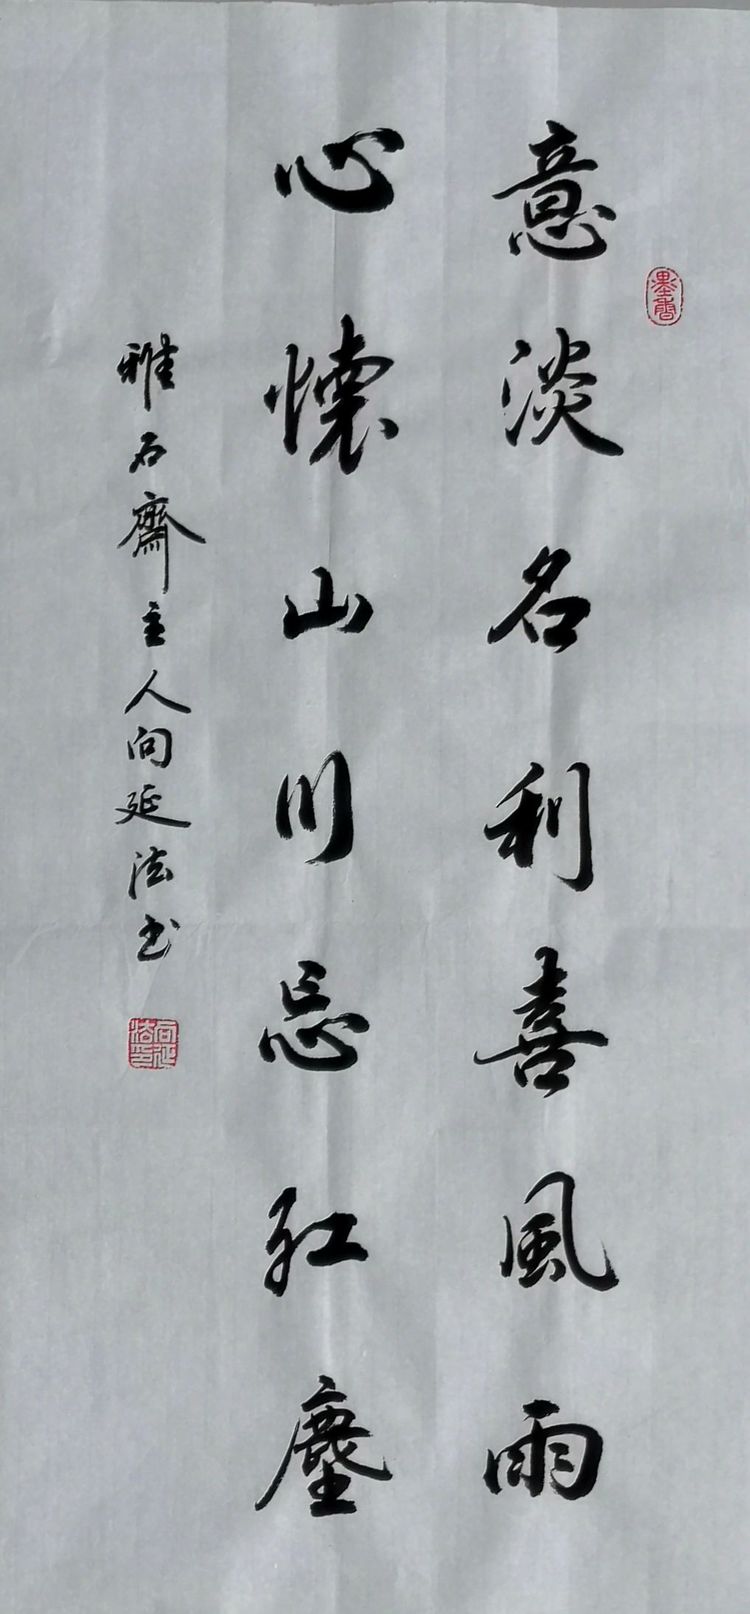 意淡名利喜風雨
心懷山川忘紅塵
雅石齋主人向延法书
墨香
向延法印